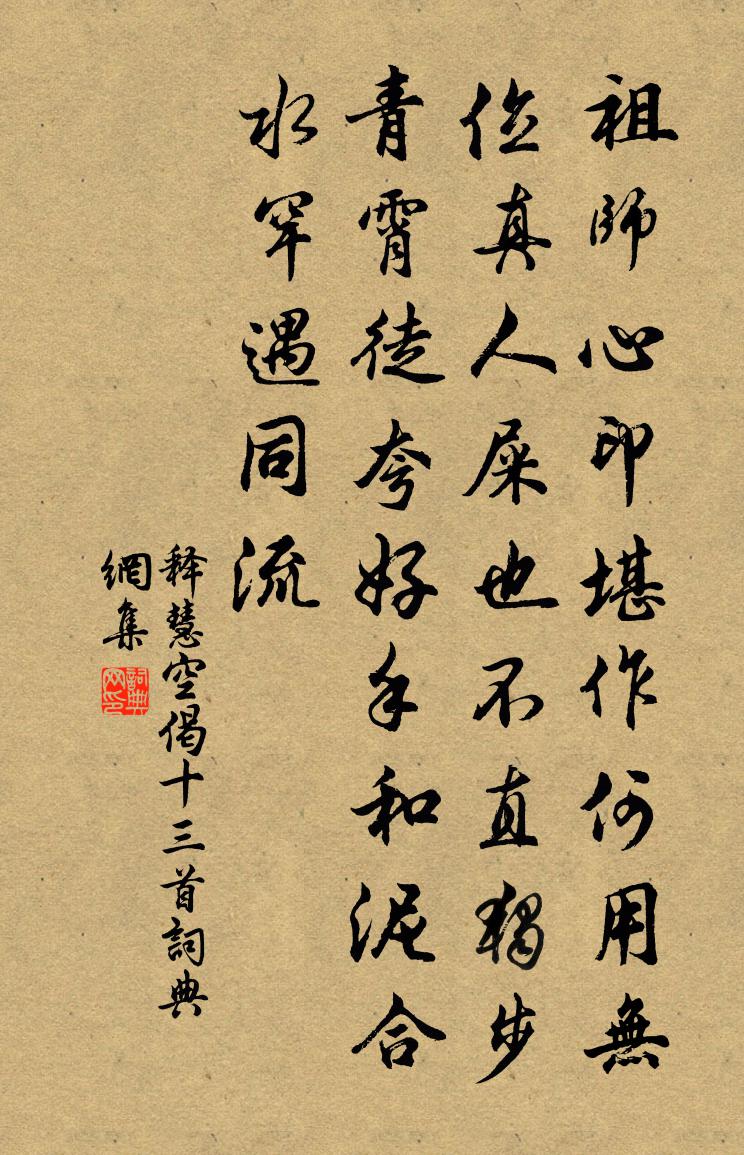 祖師心印堪作何用無
位真人屎也不直獨步
青霄徒夸好手和泥合
水罕遇同流
释慧空偈十三首詞典
網集
詞典网印